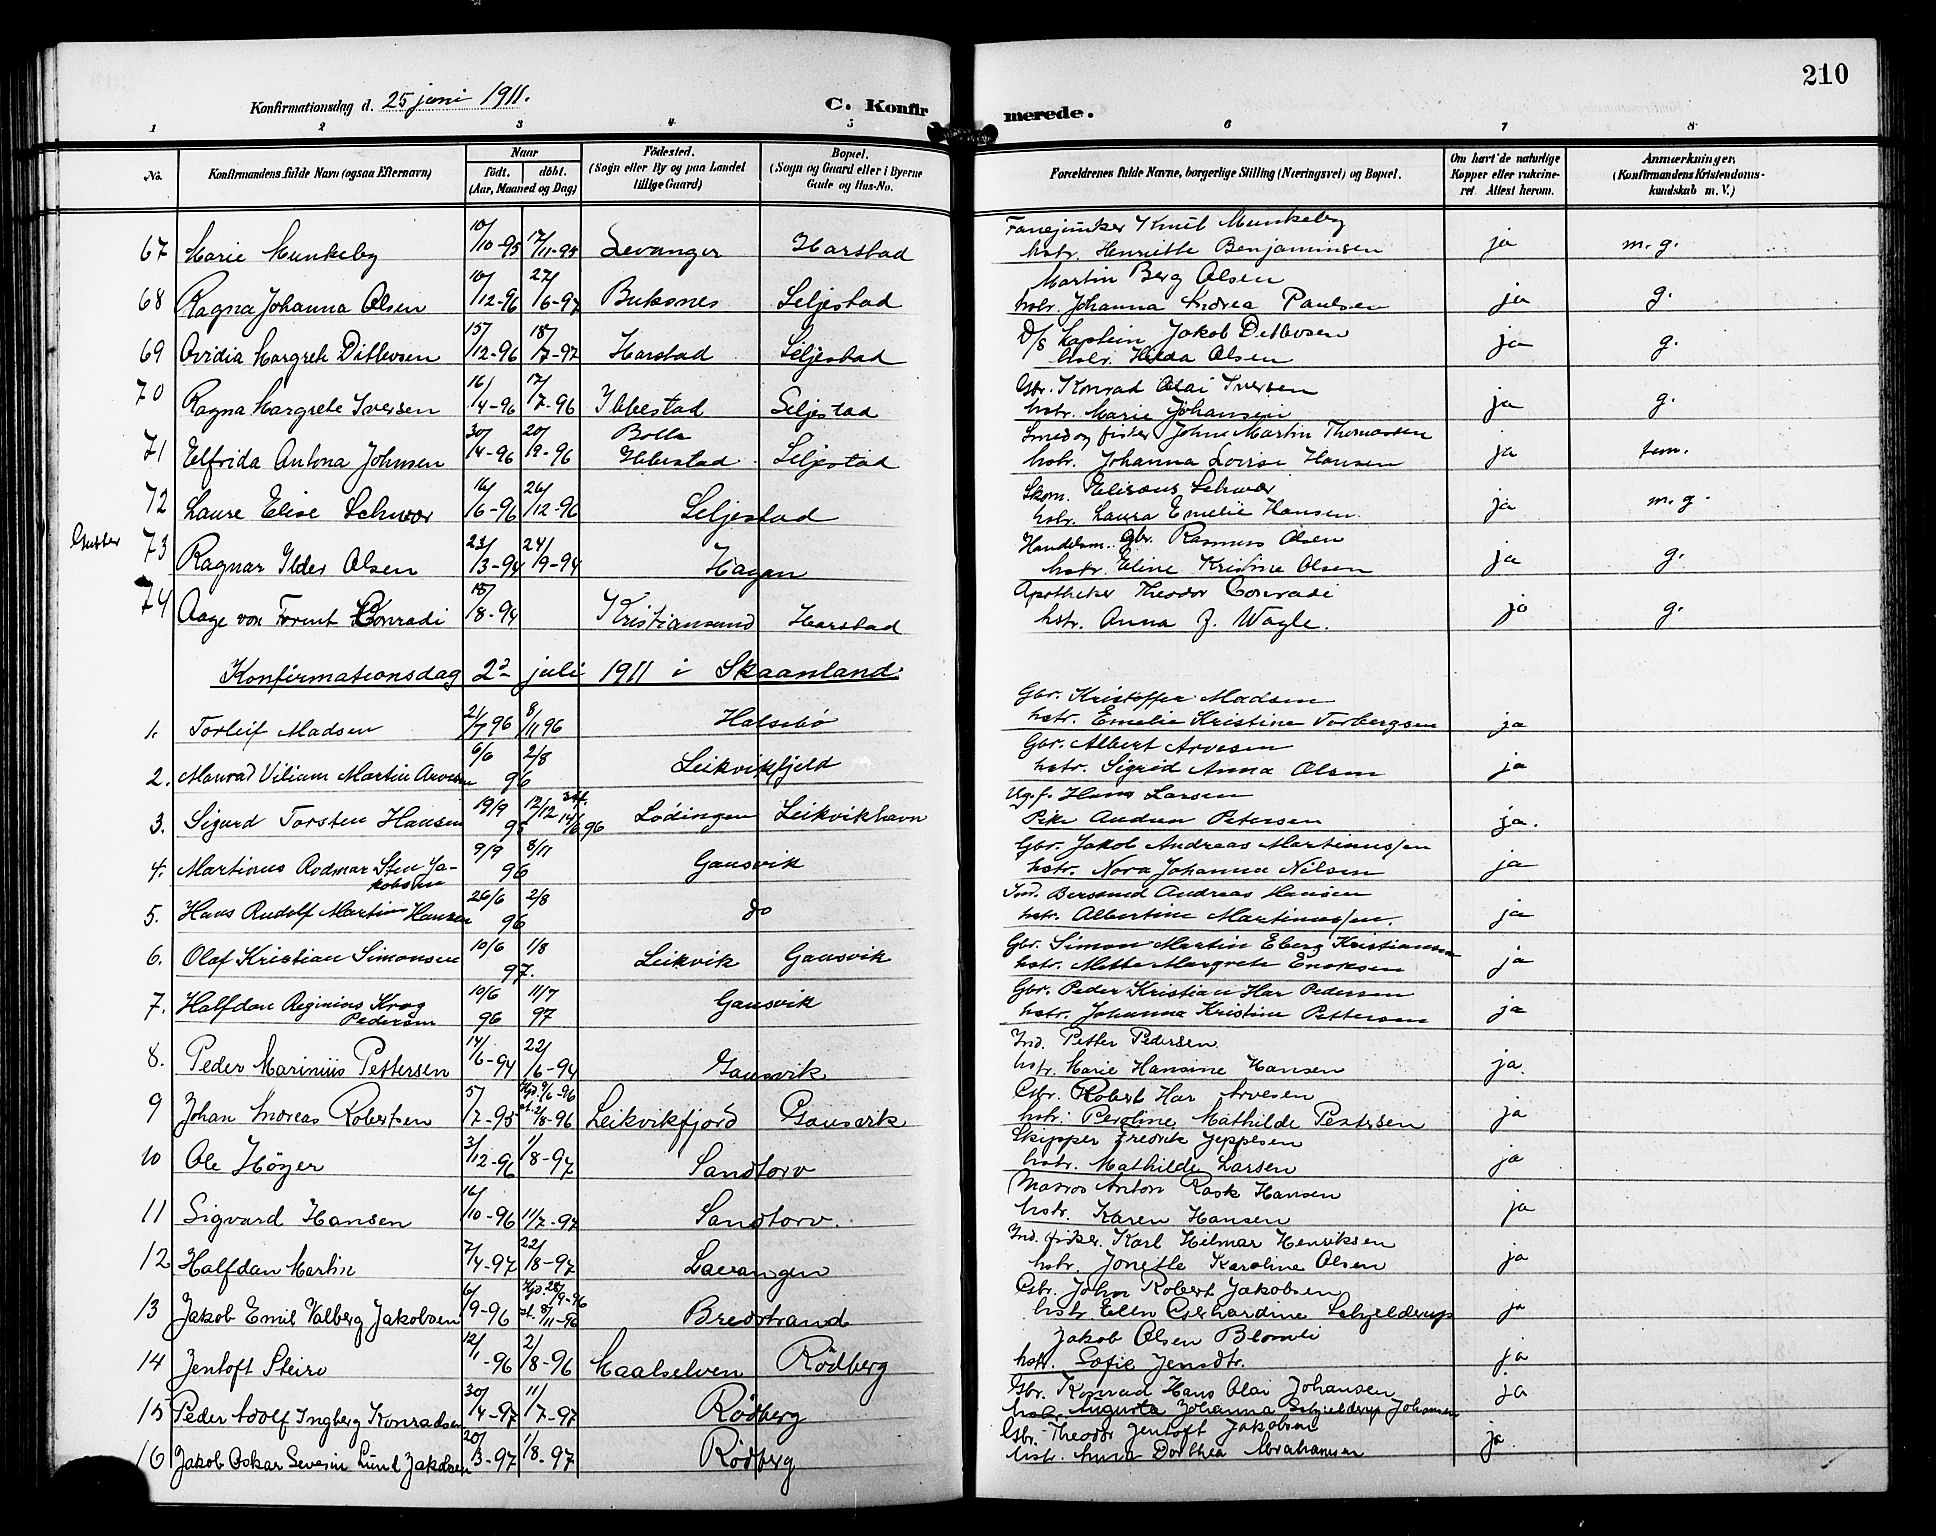 210
Konfirmationsdag d. 25 juni 1911.
C. Konfirmerede.
1 2 3 4 5 6 7 8
No.
Konfirmandens fulde Navn (ogsaa Efternavn)
Naar
født. døbt.
(Aar, Maaned og Dag)
Fødested.
(Sogn eller By og paa Landet
tillige Gaard)
Bopæl.
(Sogn og Gaard eller i Byerne
Gade og Hus-No.
Forældrenes fulde Navne, borgerlige Stilling (Næringsvei) og Bopæl.
Om havt de naturlige
Kopper eller vakcine-
ret Attest herom.
Anmærkninger.
(Konfirmandens Kristendoms-
kundskab m. V.)
67 Marie Munkeby 10/10-95 17/11-95 Levanger Harstad Fanejunker Knut Munkeby
hstr. Henriette Benjaminsen ja m. g.
68 Ragna Johanna Olsen 10/12-96 27/6-97 Buksnes Seljestad Martin Berg Olsen
hstr. Johanna Andrea Paulsen ja g.
69 Ovidia Margrete Ditlevsen 15/12-96 18/7-97 Harstad Seljestad D/S Kaptein Jakob Ditlevsen
hstr. Hilda Olsen ja g.
70 Ragna Margrete Iversen 16/4-96 17/7-96 Ibbestad Seljestad Gbr. Konrad Olai Iversen
hstr. Marie Johansen ja g.
71 Elfrida Antona Johnsen 30/4-96 20/9-96 Bolla Ibbestad Seljestad Smed og fisker Johns Martin Thomassen
hstr. Johanna Lovise Hansen ja tem.
72 Laure Elise Schwær 16/6-96 26/12-96 Seljestad Skom. Eliseus Schwær
hstr. Laura Emelie Hansen ja m. g.
Gutter 73 Ragnar Ilder Olsen 23/3-94 24/9-94 Hagan Handelsm. Gbr. Rasmus Olsen
hstr. Eline Kristine Olsen ja g.
74 Aage von Conradi 18/8-94 Kristiansund Harstad Apotheker Theodor Conradi
hstr. Anna J. Wayle. ja g.
Konfirmationsdag 2 juli 1911 i Skaanland.
1. Torleif Madsen 21/7 96 8/11 96 Halsebø Gbr. Kristoffer Madsen
hstr. Emelie Kristine Torbergsen ja
2. Manrad Viliam Martin Arvesen 6/6 2/8 96 Leikvikfjeld Gbr. Albert Arvesen
hstr. Sigrid Anna Olsen ja
3. Sigurd Torsten Hansen 19/9 12/12 14/6 96 Lødingen Leikvikhavn Ug.f. Hans Larsen
Pike Andrea Petersen ja.
4. Martinus Rodmar Sten Jakobsen 9/9 8/11 96 Gausvik Gbr. Jakob Andreas Martinussen
hstr. Nora Johanna Nilsen ja
5. Hans Rudolf Martin Hansen 26/6 2/8 96 do Ind. Bersvend Andreas Hansen
hstr. Albertine Martinussen. ja
6. Olaf Kristian Simonsen 10/6 1/8 97. Leikvik Gausvik Gbr. Simon Martin Eberg Kristiansen
hstr. Mette Margrete Enoksen ja
7. Halfdan Reginius Krog Pedersen 10/6 96 11/7 97 Gausvik Gbr. Peder Kristian Har Pedersen
hstr. Johanna Kristine Pettersen ja
8. Peder Marinius Pettersen 14/6-94 22/6-94 Gausvik Ind. Petter Pedersen
hstr. Marie Hansine Hansen ja.
9 Johan Andreas Robertsen 5/7-95 Hjd. 9/6-96 st. 2/8-96 Leikvikfjord Gausvik Gbr. Robert Har Arvesen
hstr. Peroline Mathilde Pettersen ja
10 Ole Høyer 3/12-96 1/8-97 Sandtorv Skipper Fredrik Jeppesen
hstr. Mathilde Larsen ja
11 Sigvard Hansen 16/10-96 11/7-97 Sandtorv. Matros Anton Rask Hansen
hstr. Karen Hansen ja
12 Halfdan Martin 7/4-97 22/8-97 Lavangen Ind. fisker. Karl Hilmar Henriksen
hstr. Jonette Karoline Olsen ja
13 Jakob Emil Valberg Jakobsen 6/9-96 Hjd. 28/9-96 st. 8/11-96 Bredstrand Gbr. John Robert Jakobsen
hstr. Ellen Gerhardine Schjelderup ja
14 Jentoft Steiro 12/1-96 2/8-96 Maalselven Rødberg Jakob Olsen Blomli
hstr. Sofie Jensdtr. ja
15 Peder Adolf Ingberg Konradsen 30/4-97 11/7-97 Rødberg Gbr. Konrad Hans Olai Johansen
hstr. Augusta Johanna Schjelderup Johansen ja
16 Jakob Oskar Severin Lund Jakobsen 20/3-97 1/8-97 Rødberg Gbr. Theodor Jentoft Jakobsen
hstr. Anna Dorthea Abrahamsen ja.